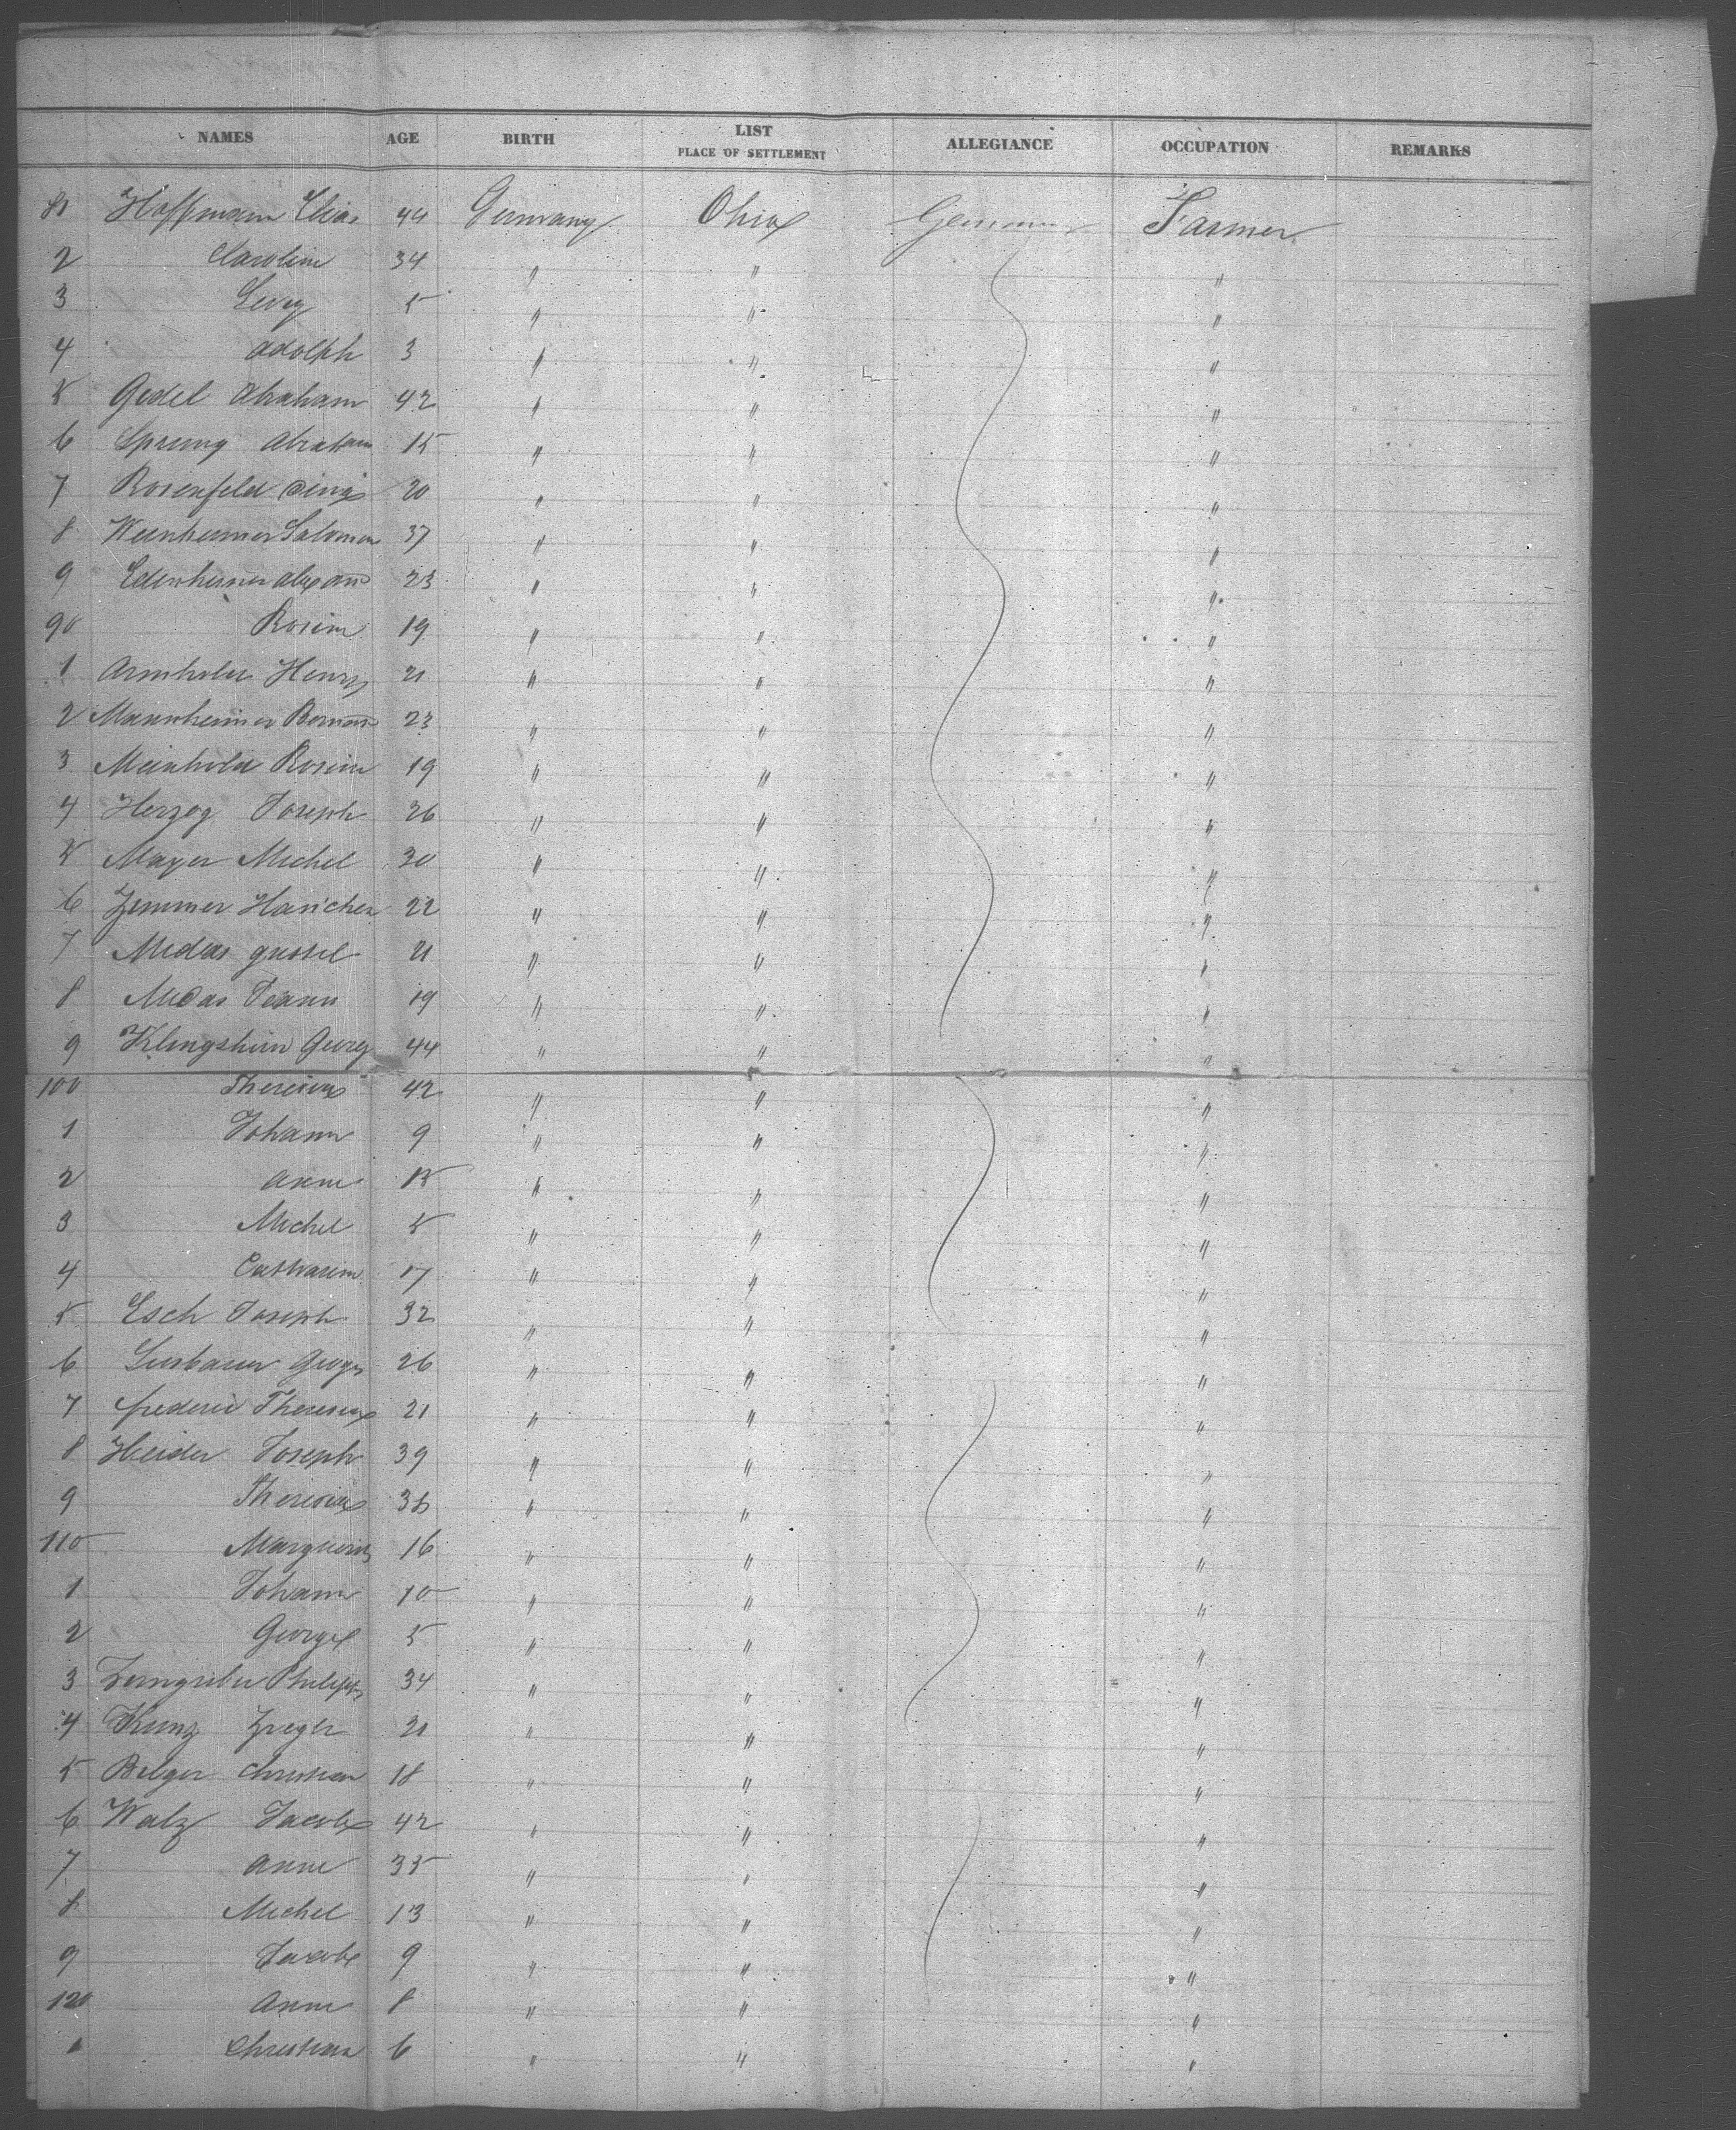 NAMES AGE BIRTH LIST PLACE OF SETTLEMENT ALLEGIANCE OCCUPATION REMARKS
81 Hoffmann Elias 44 Germany Ohio German Farmer
2 Carolin 34 " " "
3 Levy 5 " " "
4 Adolph 3 " " "
5 Gedel Abraham 42 " " "
6 Sprung Abraham 15 " " "
7 Rosenfeld 20 " " "
8 Weinheimer Salomon 37 " " "
9 Edenheimer Alexand 23 " " "
90 Rosine 19 " " "
1 Henry 21 " " "
2 Mannheimer 23 " " "
3 Meinhold Rosine 19 " " "
4 Herzog Joseph 26 " " "
5 Mayer Michel 30 " " "
6 Zimmer Hanchen 22 " " "
7 Midas 21 " " "
8 Midas 19 " " "
9 Klingshirn Georg 44 " " "
100 Theresia 42 " " "
1 Johann 9 " " "
2 Anne 15 " " "
3 Michel 5 " " "
4 Catharin 17 " " "
5 Esch Joseph 32 " " "
6 George 26 " " "
7 frederic Theresia 21 " " "
8 Heider Joseph 39 " " "
9 Theresia " " "
110 Marguerit 16 " " "
1 Johann 10 " " "
2 George 5 " " "
3 Philipp 34 " " "
4 Kunz 21 " " "
5 Belger Christian 18 " " "
6 Walz Jacob 42 " " "
7 Anne 35 " " "
8 Michel 13 " " "
9 Jacob 9 " " "
120 Anne 8 " " "
1 Christian 6 " " "